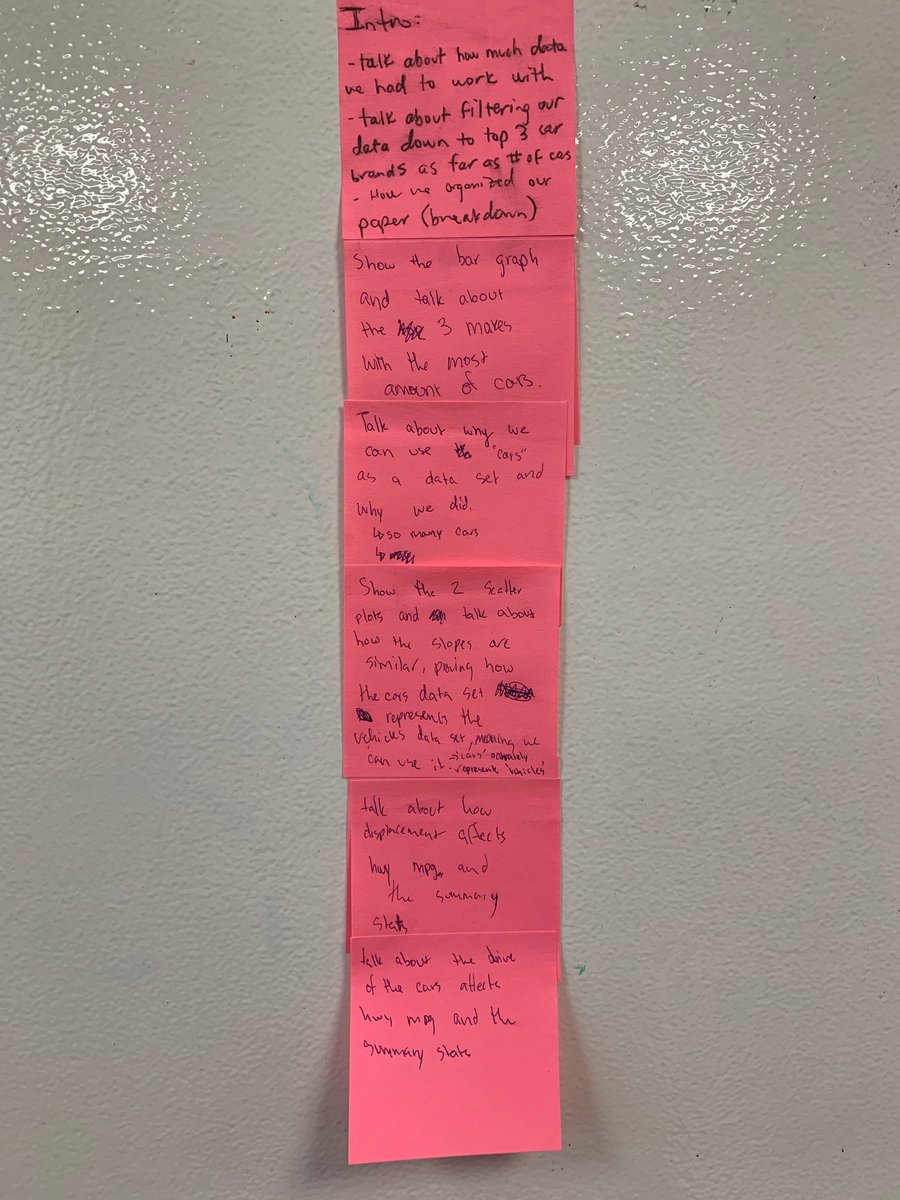 Intro:
- talk about how much data
we had to work with
- talk about filtering our
data down to top 3 car
brands as far as # of cas
- How we organized our
paper (breakdown)
Show the bar graph
and talk about
the 3 makes
with the most
amount of cars.
Talk about why we
can use "cars"
as a data set and
why we did.
↳ so many cars
↳
Show the 2 scatter
plots and talk about
how the slopes are
similar, proving how
the cars data set
represents the
vehicles data set, meaning we
can use it → 'cars' accurately
represents 'vehicles'
talk about how
displacement affects
hwy mpg and
the summary
stats
talk about the drive
of the cars affects
hwy mpg and the
summary stats